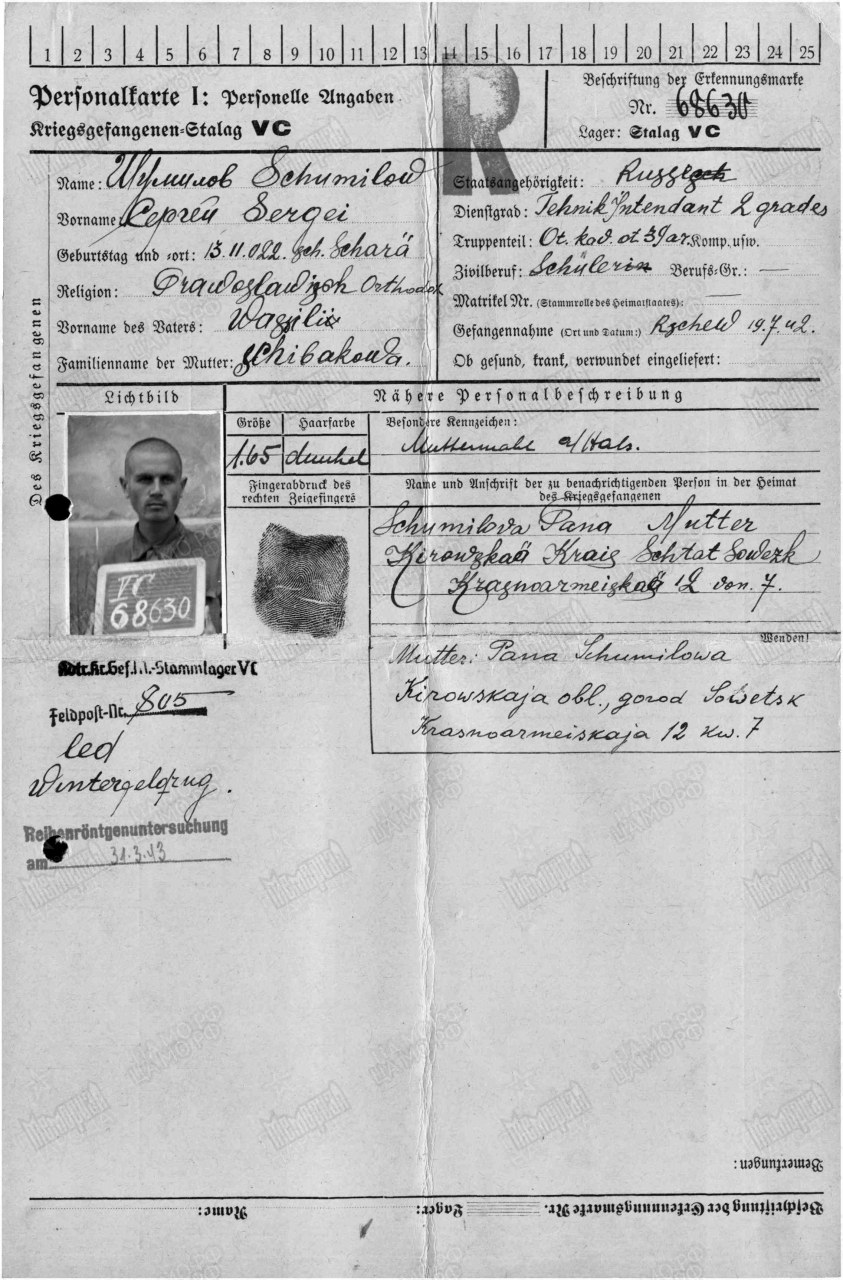 1 2 3 4 5 6 7 8 9 10 11 12 13 14 15 16 17 18 19 20 21 22 23 24 25
R
Personalkarte I: Personelle Angaben
Kriegsgefangenen-Stalag VC
Beschriftung der Erkennungsmarke
Nr. 68630
Lager: Stalag VC
Des Kriegsgefangenen
Name: Шумилов Schumilow
Vorname: Сергей Sergei
Geburtstag und -ort: 13.11.022. Scharä
Religion: Prawoslawisch Orthodox
Vorname des Vaters: Wassilii
Familienname der Mutter: Schibakowa.
Staatsangehörigkeit:
Dienstgrad: Tehnik Intendant 2 grades
Truppenteil: Ot. kad. ot 39 ar. Komp. usw.
Zivilberuf: Schüler Berufs-Gr.: —
Matrikel Nr. (Stammrolle des Heimatstaates): —
Gefangennahme (Ort und Datum:) Rschew 19.7.42.
Ob gesund, krank, verwundet eingeliefert:
Lichtbild
Nähere Personalbeschreibung
Größe
1.65
Haarfarbe
dunkel
Besondere Kennzeichen:
Muttermahl a/Hals.
Fingerabdruck des
rechten Zeigefingers
Name und Anschrift der zu benachrichtigenden Person in der Heimat
des Kriegsgefangenen
Schumilova Pana Mutter
Kirowskaä Krais Schtat Sowezk
Krasnoarmeiskaä 12 von. 7.
VC
68630
Wenden!
Mutter: Pana Schumilowa
Kirowskaja obl., gorod Sowetsk
Krasnoarmeiskaja 12 kw. 7
Kdtr.Kr.Gef.M.-Stammlager VC
Feldpost-Nr. 805
led
Reihenröntgenuntersuchung
am 31.3.43
Bemerkungen:
Beschriftung der Erkennungsmarke Nr. Lager: Name: